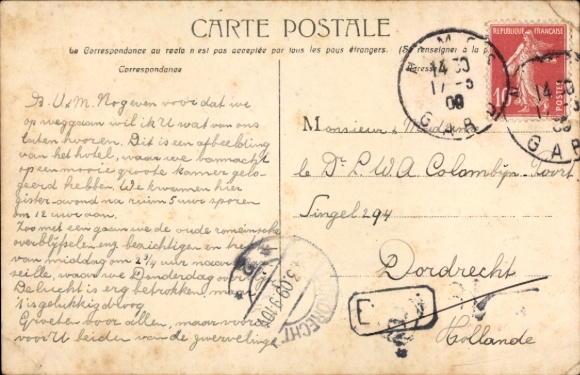 CARTE POSTALE
Le Correspondance au recto n'est pas acceptée par tous les pays étrangers. (Se renseigner à la
Correspondance
REPUBLIQUE FRANÇAISE
10
POSTES
14 30
17-3
09
GARD
P. U. & M. Nog even voor dat we
op weg gaan wil ik U wat van ons
laten hooren. Dit is een afbeelding
van het hotel, waar we vannacht
op een mooie groote kamer gelo-
geerd hebben. We kwamen hier
gister-avond na ruim 5 uur sporen
om 12 uur aan.
Zoo met een gaan we de oude romeinsche
overblijfselen bezichtigen en
van middag om 2 3/4 uur naar
seille, waar we Donderdag
De lucht is erg betrokken,
't is gelukkig droog
Groeten voor allen, maar
voor U beiden van de zwervelingen
Monsieur & Madame
le Dr. L. W. A. Colombijn-Poort
Singel 294
Dordrecht
Hollande
DORDRECHT